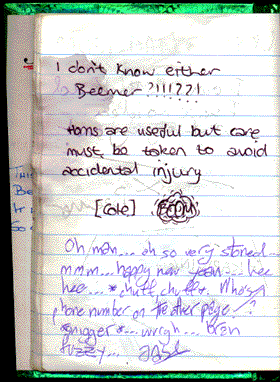 I don't know either
Beemer?!!!??!
Homs are useful but care
must be taken to avoid
accidental injury
[Cole]
Oh man... oh so very stoned...
mmm... happy new year... hee
hee... *chuff, chuff*. Who's
phone number on the other page..?
*snigger*... urrgh... brain
fuzzy...